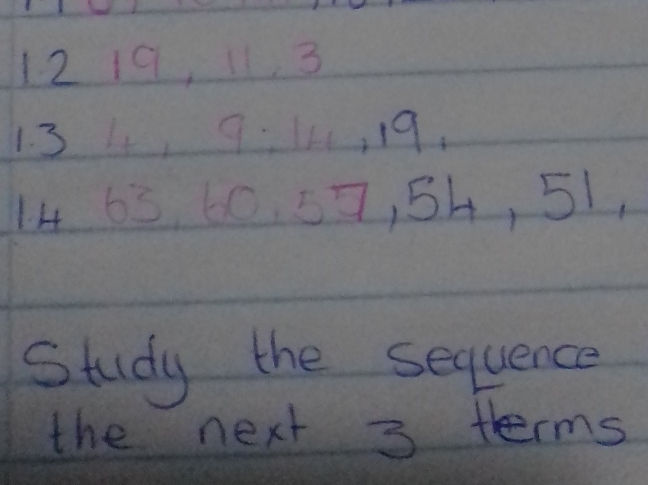 1.2 19, 11, 3
1.3 4, 9, 14, 19,
1.4 63, 60, 57, 54, 51,
Study the sequence
the next 3 terms